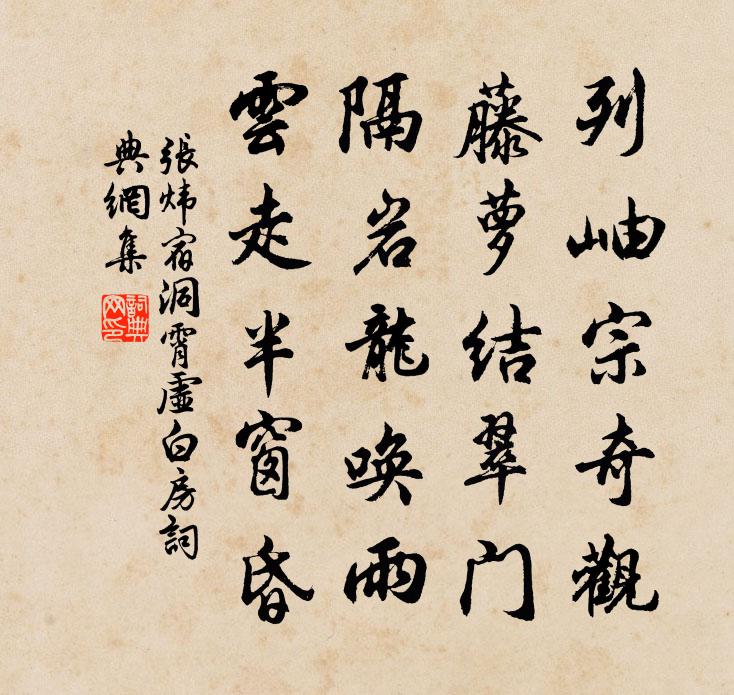 列岫宗奇觀
藤萝结翠门
隔岩龍唤雨
雲走半窗昏
張炜宿洞霄虛白房詞
典網集
詞典
网印